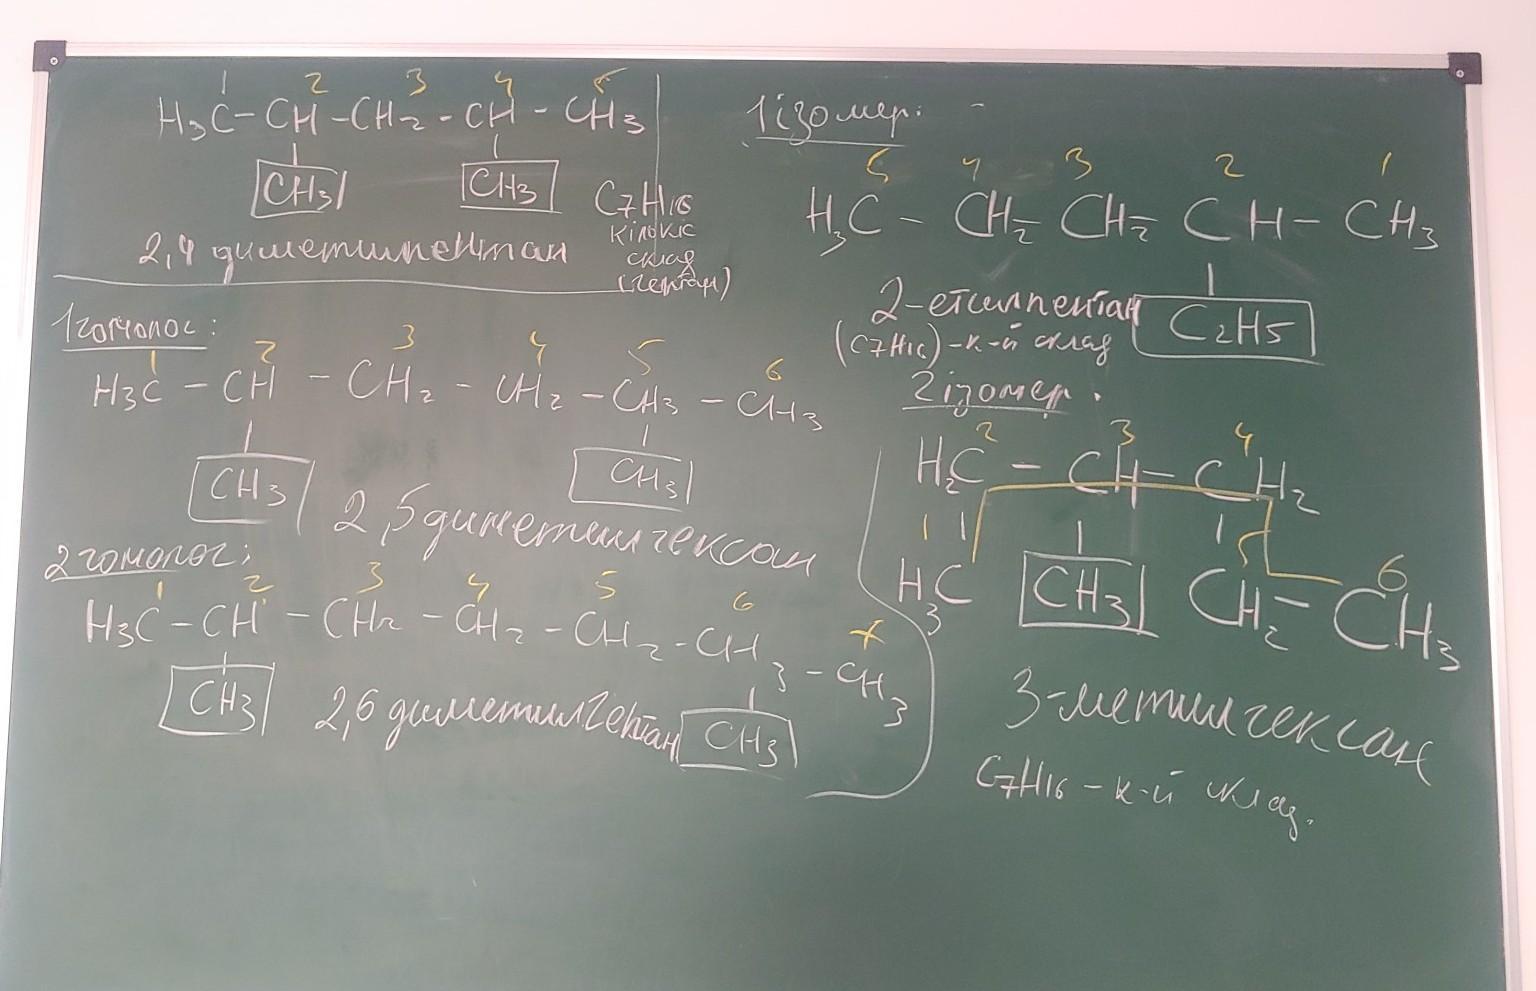 1 2 3 4 5
H₃C – CH – CH₂ – CH – CH₃
CH₃ CH₃
C₇H₁₆
кількіс
склад
(гептан)
2,4 диметилпентан
1 гомолог:
1 2 3 4 5 6
H₃C – CH – CH₂ – CH₂ – CH₃ – CH₃
CH₃ CH₃
2,5 диметилгексан
2 гомолог:
1 2 3 4 5 6 7
H₃C – CH – CH₂ – CH₂ – CH₂ – CH₃ – CH₃
CH₃ CH₃
2,6 диметилгептан
1 ізомер:
5 4 3 2 1
H₃C – CH₂ – CH₂ – CH – CH₃
C₂H₅
2-етилпентан
(C₇H₁₆) – к-й склад
2 ізомер.
2 3 4
H₂C – CH – CH₂
1 5 6
H₃C CH₃ CH₂ – CH₃
3-метилгексан
C₇H₁₆ – к-й склад.